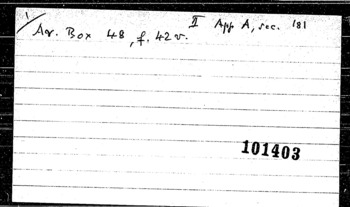 1/
II App A, sec. 181
Ar. Box 48, f. 42 v.
101403